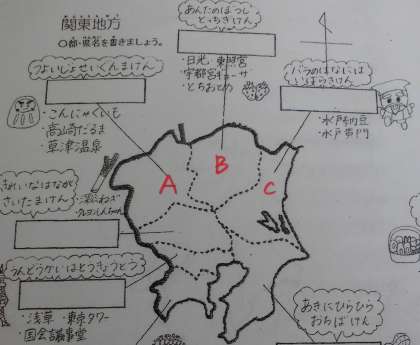 関東地方
○都・県名を書きましょう。
あんたのはつじ
とっちきけん
・日光 東照宮
・宇都宮ギョーザ
・とちおとめ
つよいじょせいぐんまけん
・こんにゃくいも
・高崎だるま
・草津温泉
バラのはなには
いばらきけん
・水戸納豆
・水戸黄門
A
B
C
きれいなはながさ
いたまけん
・深谷ねぎ
・クレヨンしんちゃん
うんどうかいはとうきょうとう
・浅草・東京タワー
・国会議事堂
あきにひらひら
おちばけん